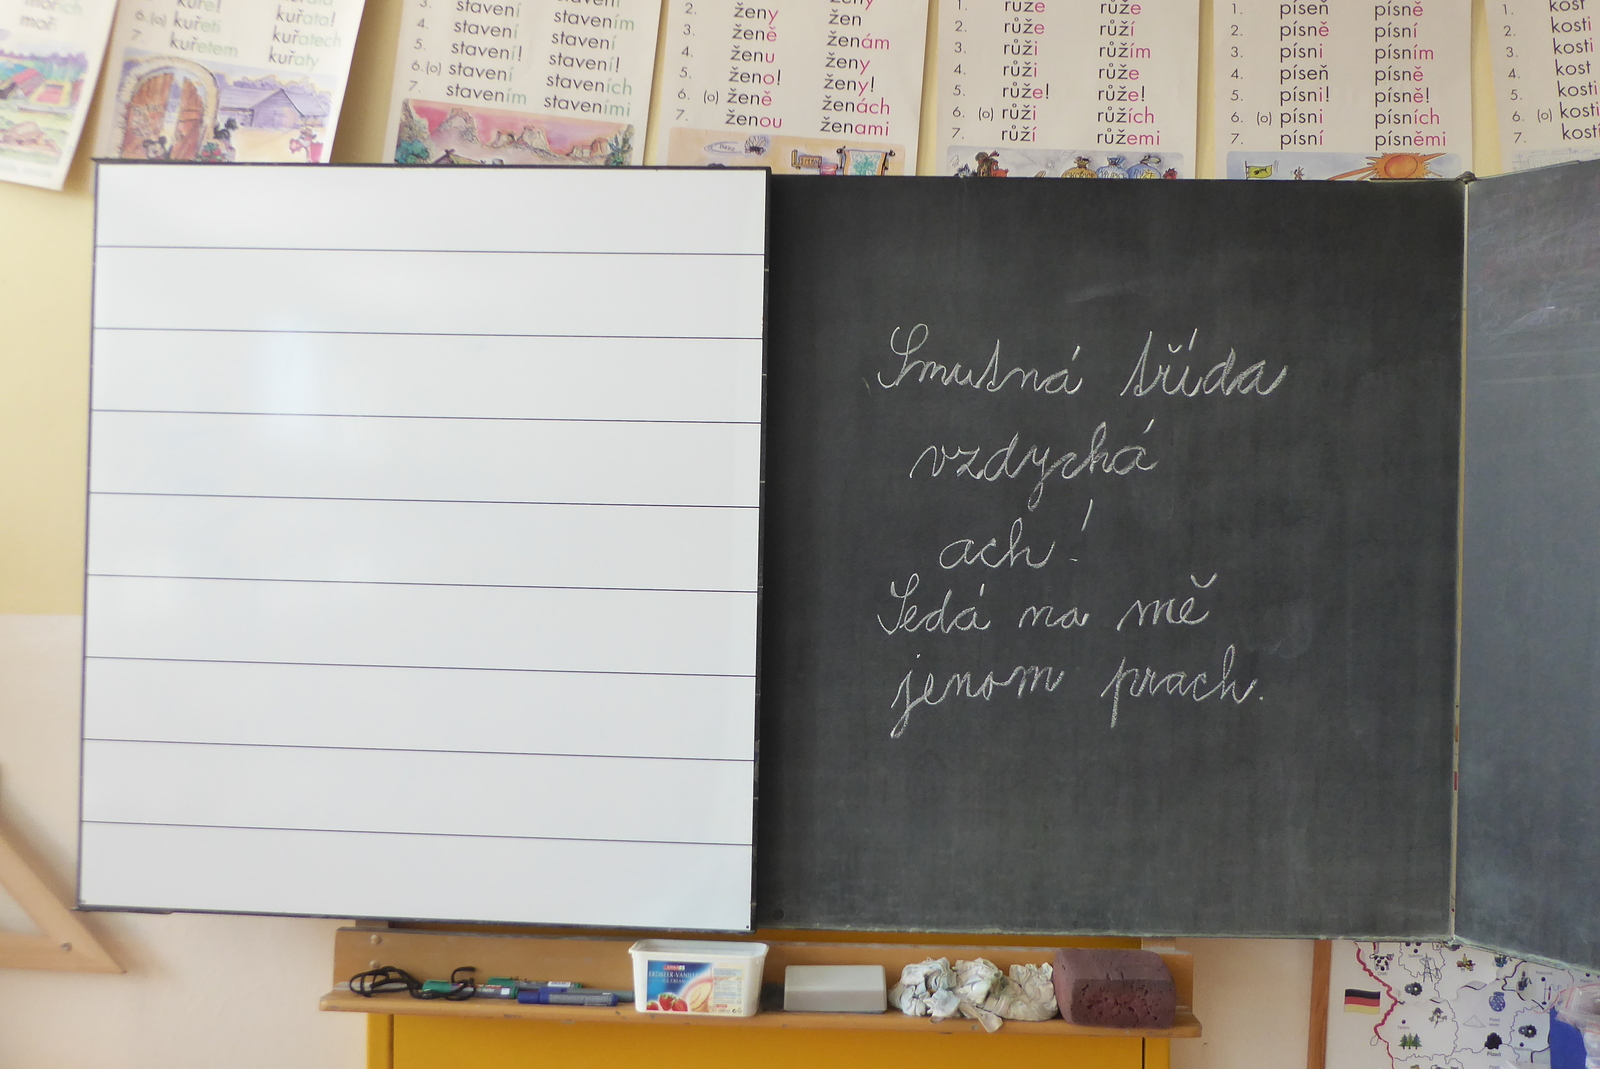 mořích
moř
kuře!
6. (o) kuřeti
7. kuřetem
kuřata!
kuřatech
kuřaty
3. stavení
4. stavení
5. stavení!
6. (o) stavení
7. stavením
stavením
stavení
stavení!
staveních
staveními
2. ženy
3. ženě
4. ženu
5. ženo!
6. (o) ženě
7. ženou
ženy
žen
ženám
ženy
ženy!
ženách
ženami
1. růže růže
2. růže růží
3. růži růžím
4. růži růže
5. růže! růže!
6. (o) růži růžích
7. růží růžemi
1. píseň písně
2. písně písní
3. písni písním
4. píseň písně
5. písni! písně!
6. (o) písni písních
7. písní písněmi
1. kost
2. kosti
3. kosti
4. kost
5. kosti
6. (o) kosti
7. kostí
Smutná třída
vzdychá
ach!
Sedá na mě
jenom prach.
ERDBEER-VANILLE